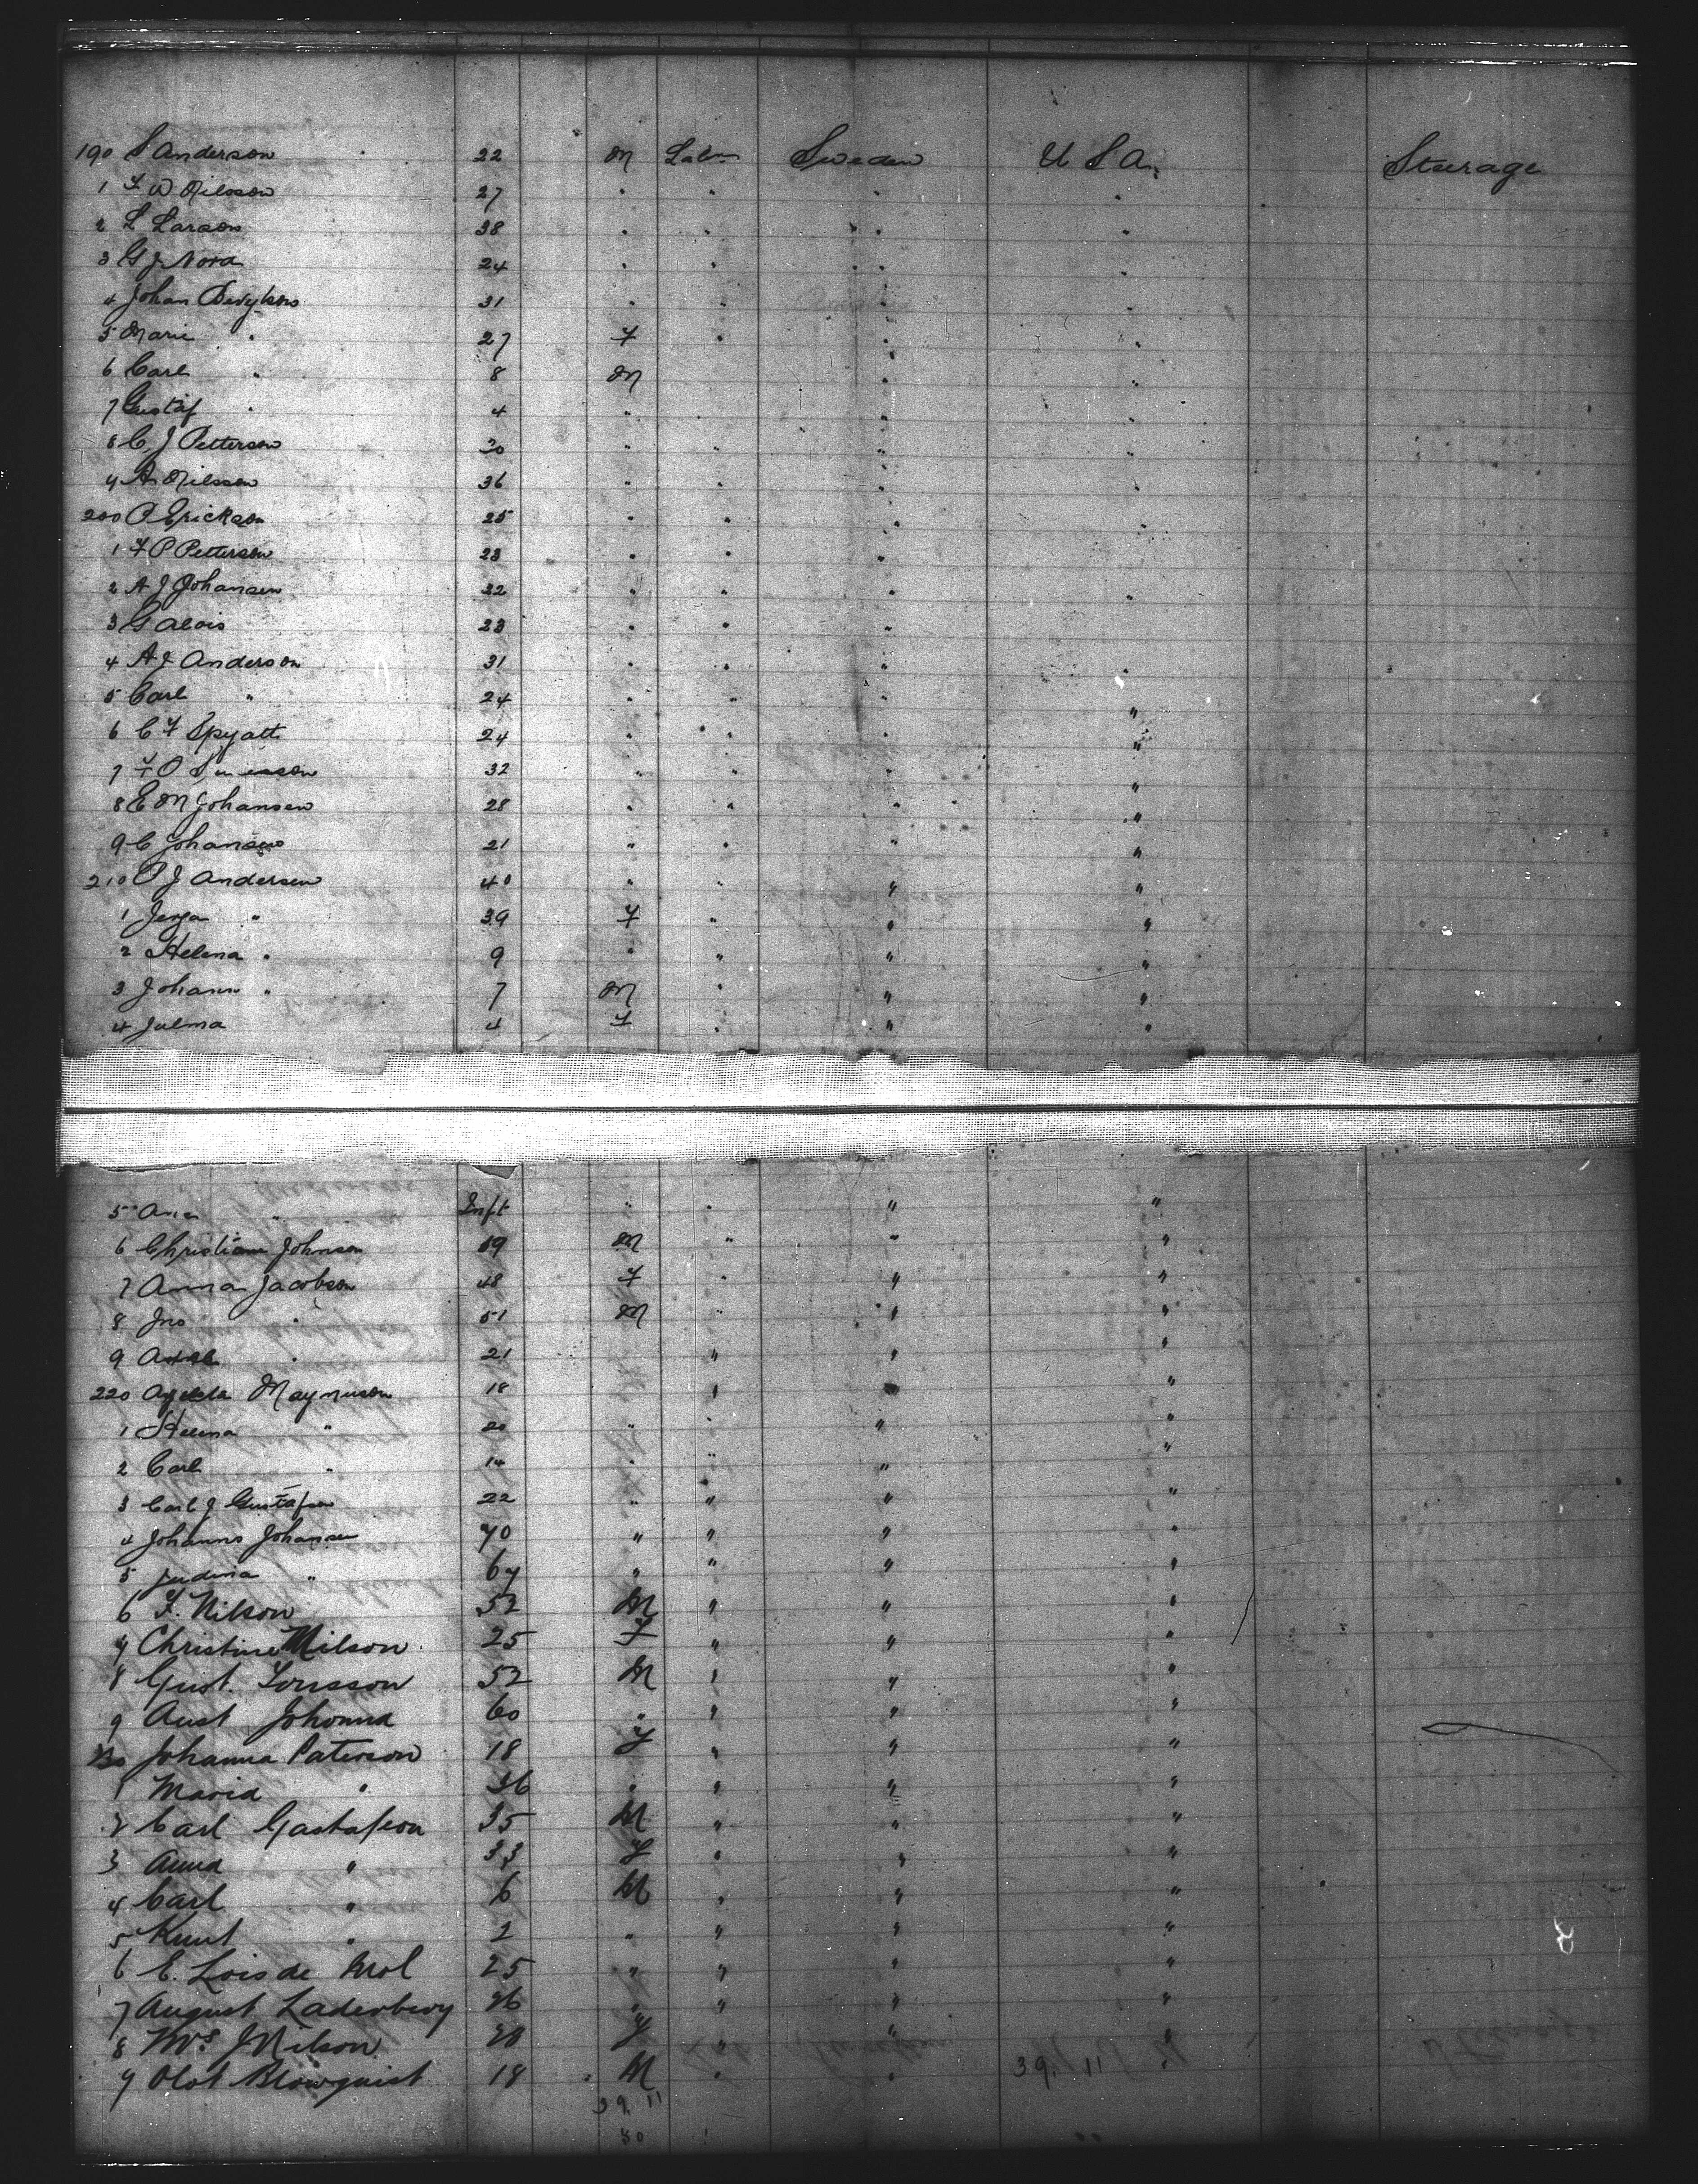 190 S Anderson 22 M Labr Sweden U S A. Steerage
1 F W Nilsson 27 " " " "
2 L Larson 38 " " " "
3 G J Nord 24 " " " "
4 Johan 31 " " " "
5 Marie " 27 F " " "
6 Carl " 8 M " "
7 Gustaf " 4 " " "
8 C J Petterson 30 " " " "
9 A Nilsson 36 " " " "
200 P Erickson 25 " " " "
1 F P Petterson 23 " " "
2 A J Johansen 22 " " " "
3 G 23 " " "
4 A J Anderson 31 " " " "
5 Carl " 24 " " " "
6 C F 24 " " " "
7 F O 32 " " " "
8 E M Johansen 28 " " " "
9 C Johansen 21 " " " "
210 P J Andersen 40 " " " "
1 " 39 F " " "
2 Helena " 9 " " " "
3 Johann " 7 M " " "
4 Julma 4 F " " "
5 Ane " Inft " " " "
6 Christian Johnson 19 M " " "
7 Anna Jacobson 48 F " " "
8 Jno " 51 M " " "
9 Axel " 21 " " "
220 Magnuson 18 " "
1 Helena " 20 " " " "
2 Carl " 14 " " " "
3 Carl J Gustafson 22 " " "
4 Johanns Johansen 70 " " " "
5 " 67 " " " "
6 F. Nilson 52 M " " "
7 Christine Nilson 25 F " " "
8 Gust. 52 M " " "
9 Aust Johonna 60 " " " "
230 Johanna Paterson 18 F " " "
1 Maria " 36 " " " "
2 Carl Gastafson 35 M " " "
3 Anna " 33 F " " "
4 Carl " 6 M " " "
5 Knut " 2 " " " "
6 E. 25 " " " "
7 August Laderberg 26 " " " "
8 Mrs J Nilson 28 F " " "
9 Olot Blowquist 18 M " " 39 11 "
39 11
50